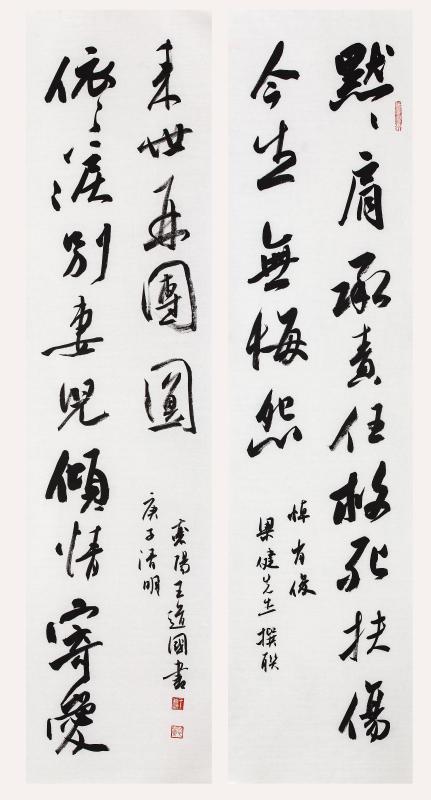 默〻肩承責任救死扶傷
今生無悔怨
悼有俊
梁健先生撰联
依〻淚别妻兒傾情寄愛
来世再團圓
庚子清明
陽王道國書